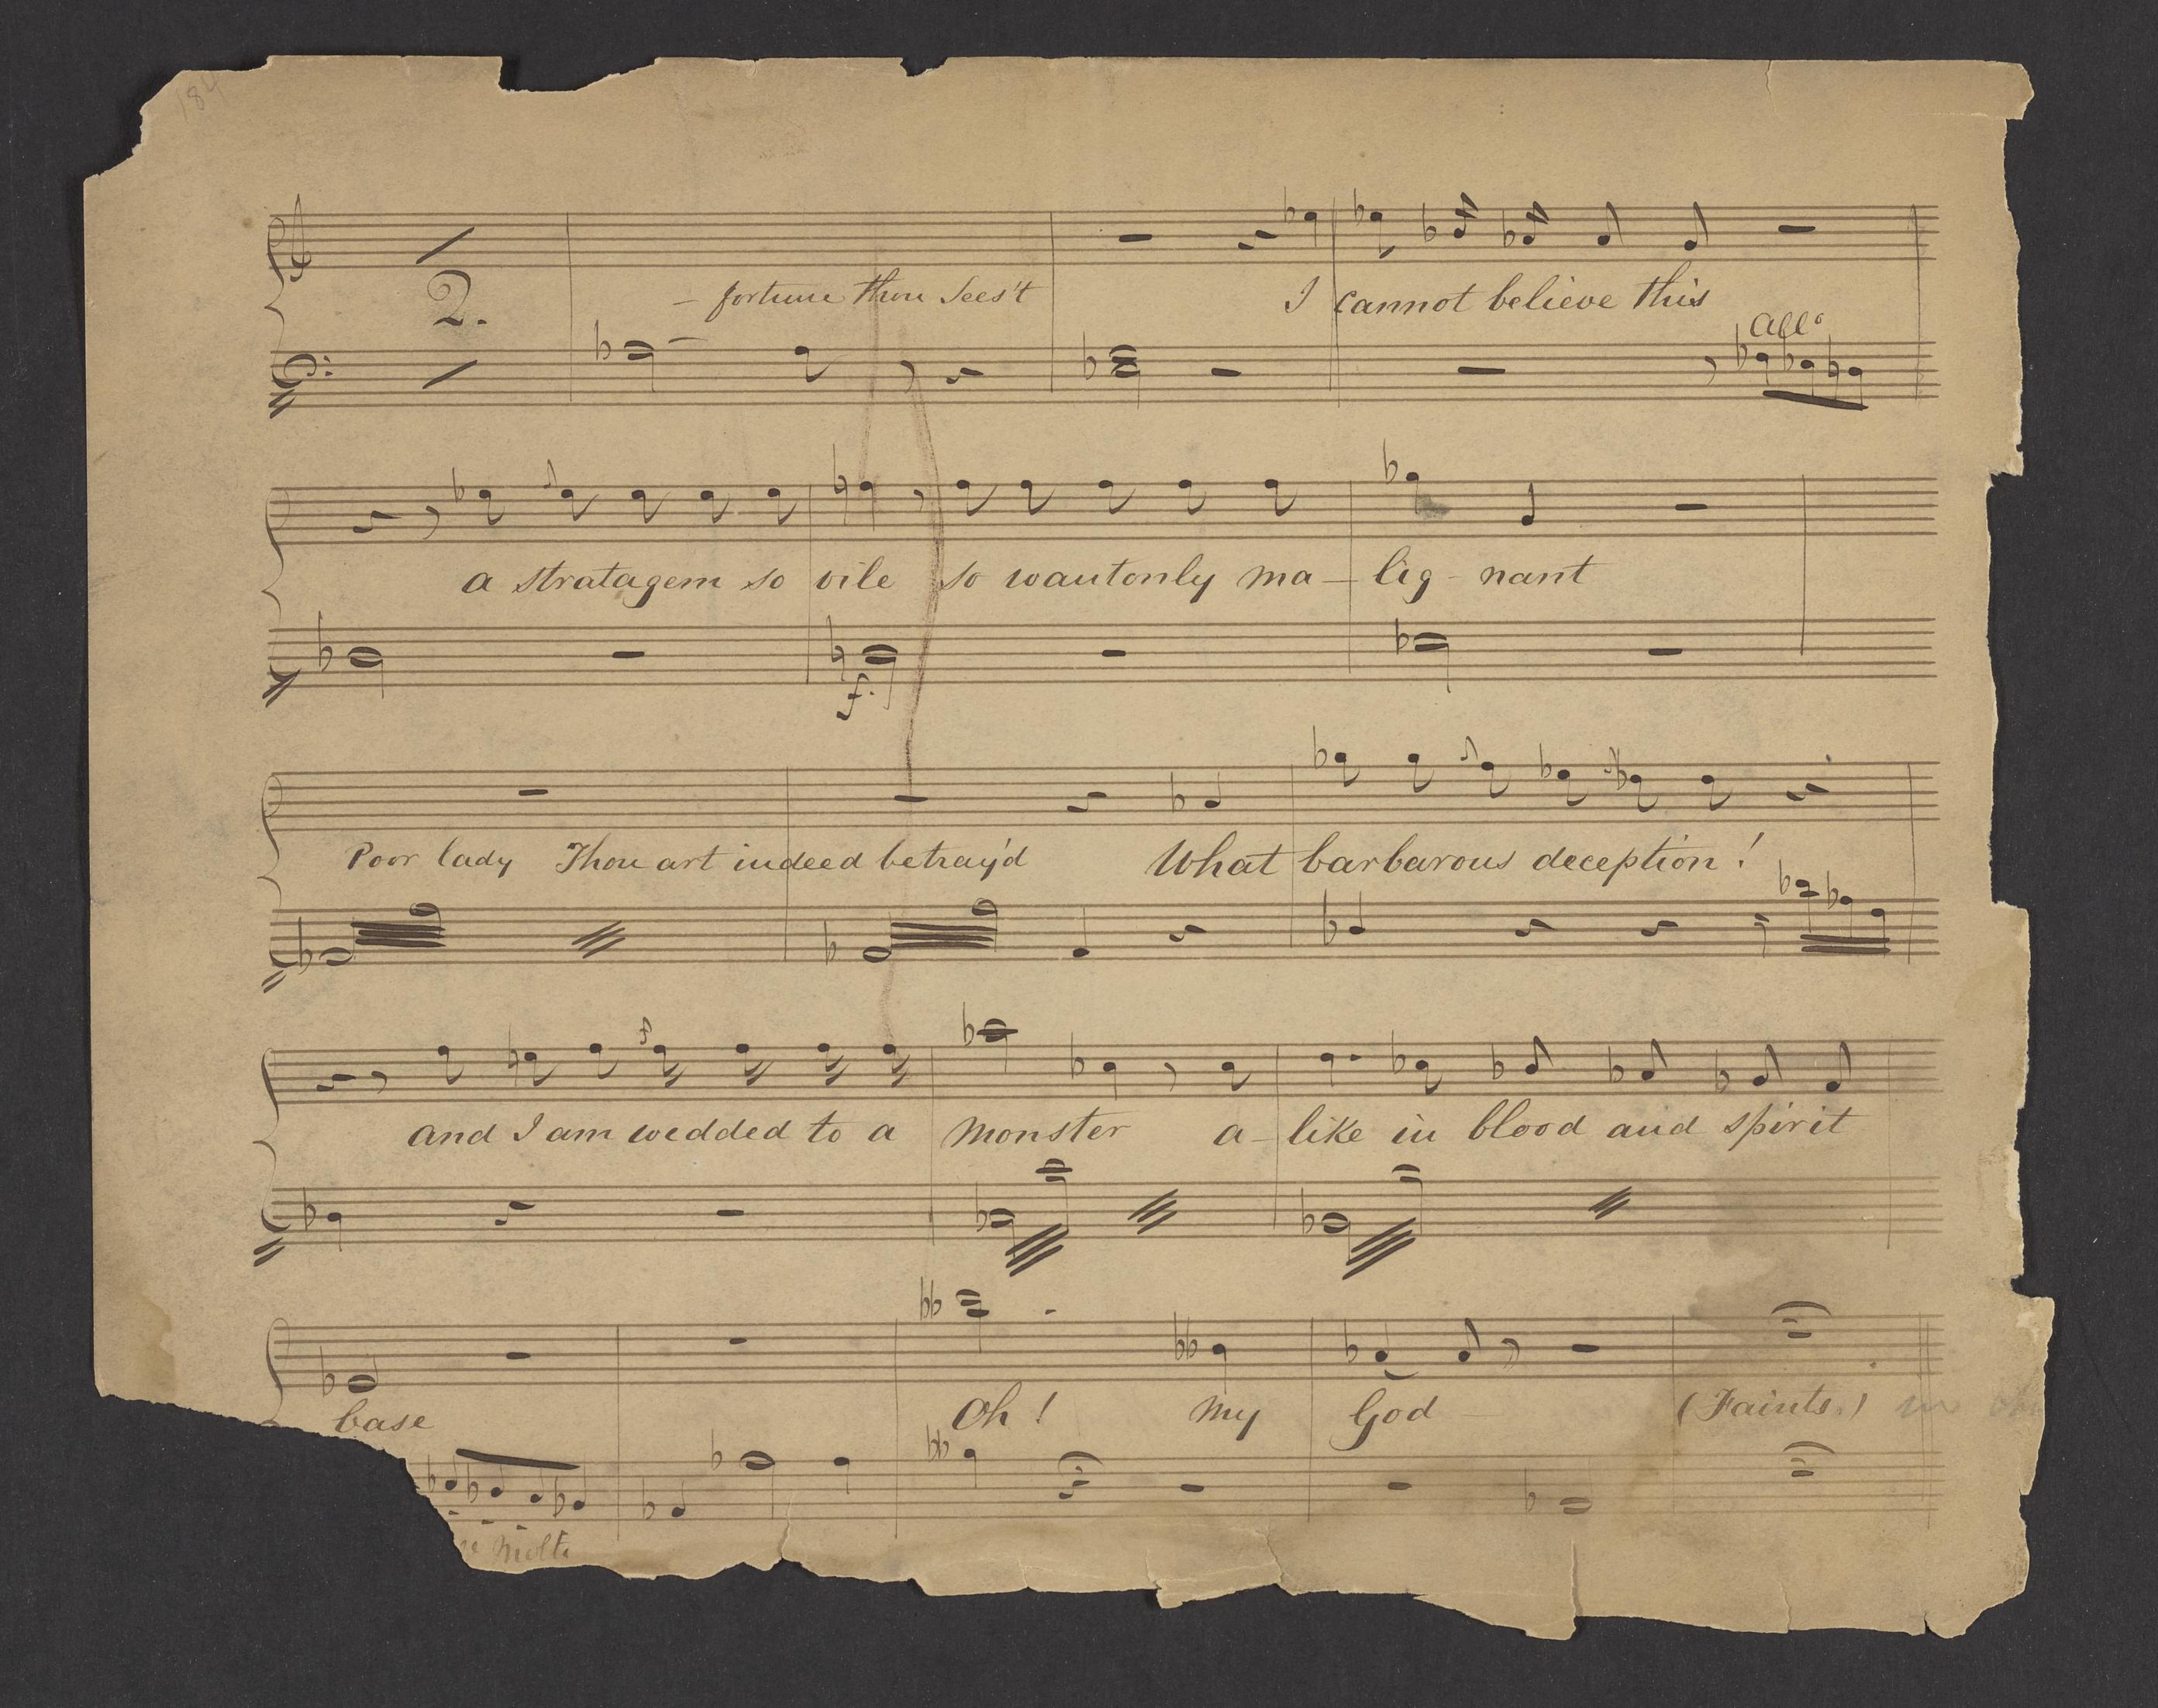 184
2.
– fortune thou sees't I cannot believe this
Allo
a stratagem so vile so wantonly ma – lig - nant
f.
Poor lady Thou art indeed betray'd What barbarous deception !
and I am wedded to a monster a – like in blood and spirit
base Oh ! my God – (Faints.) in
molto